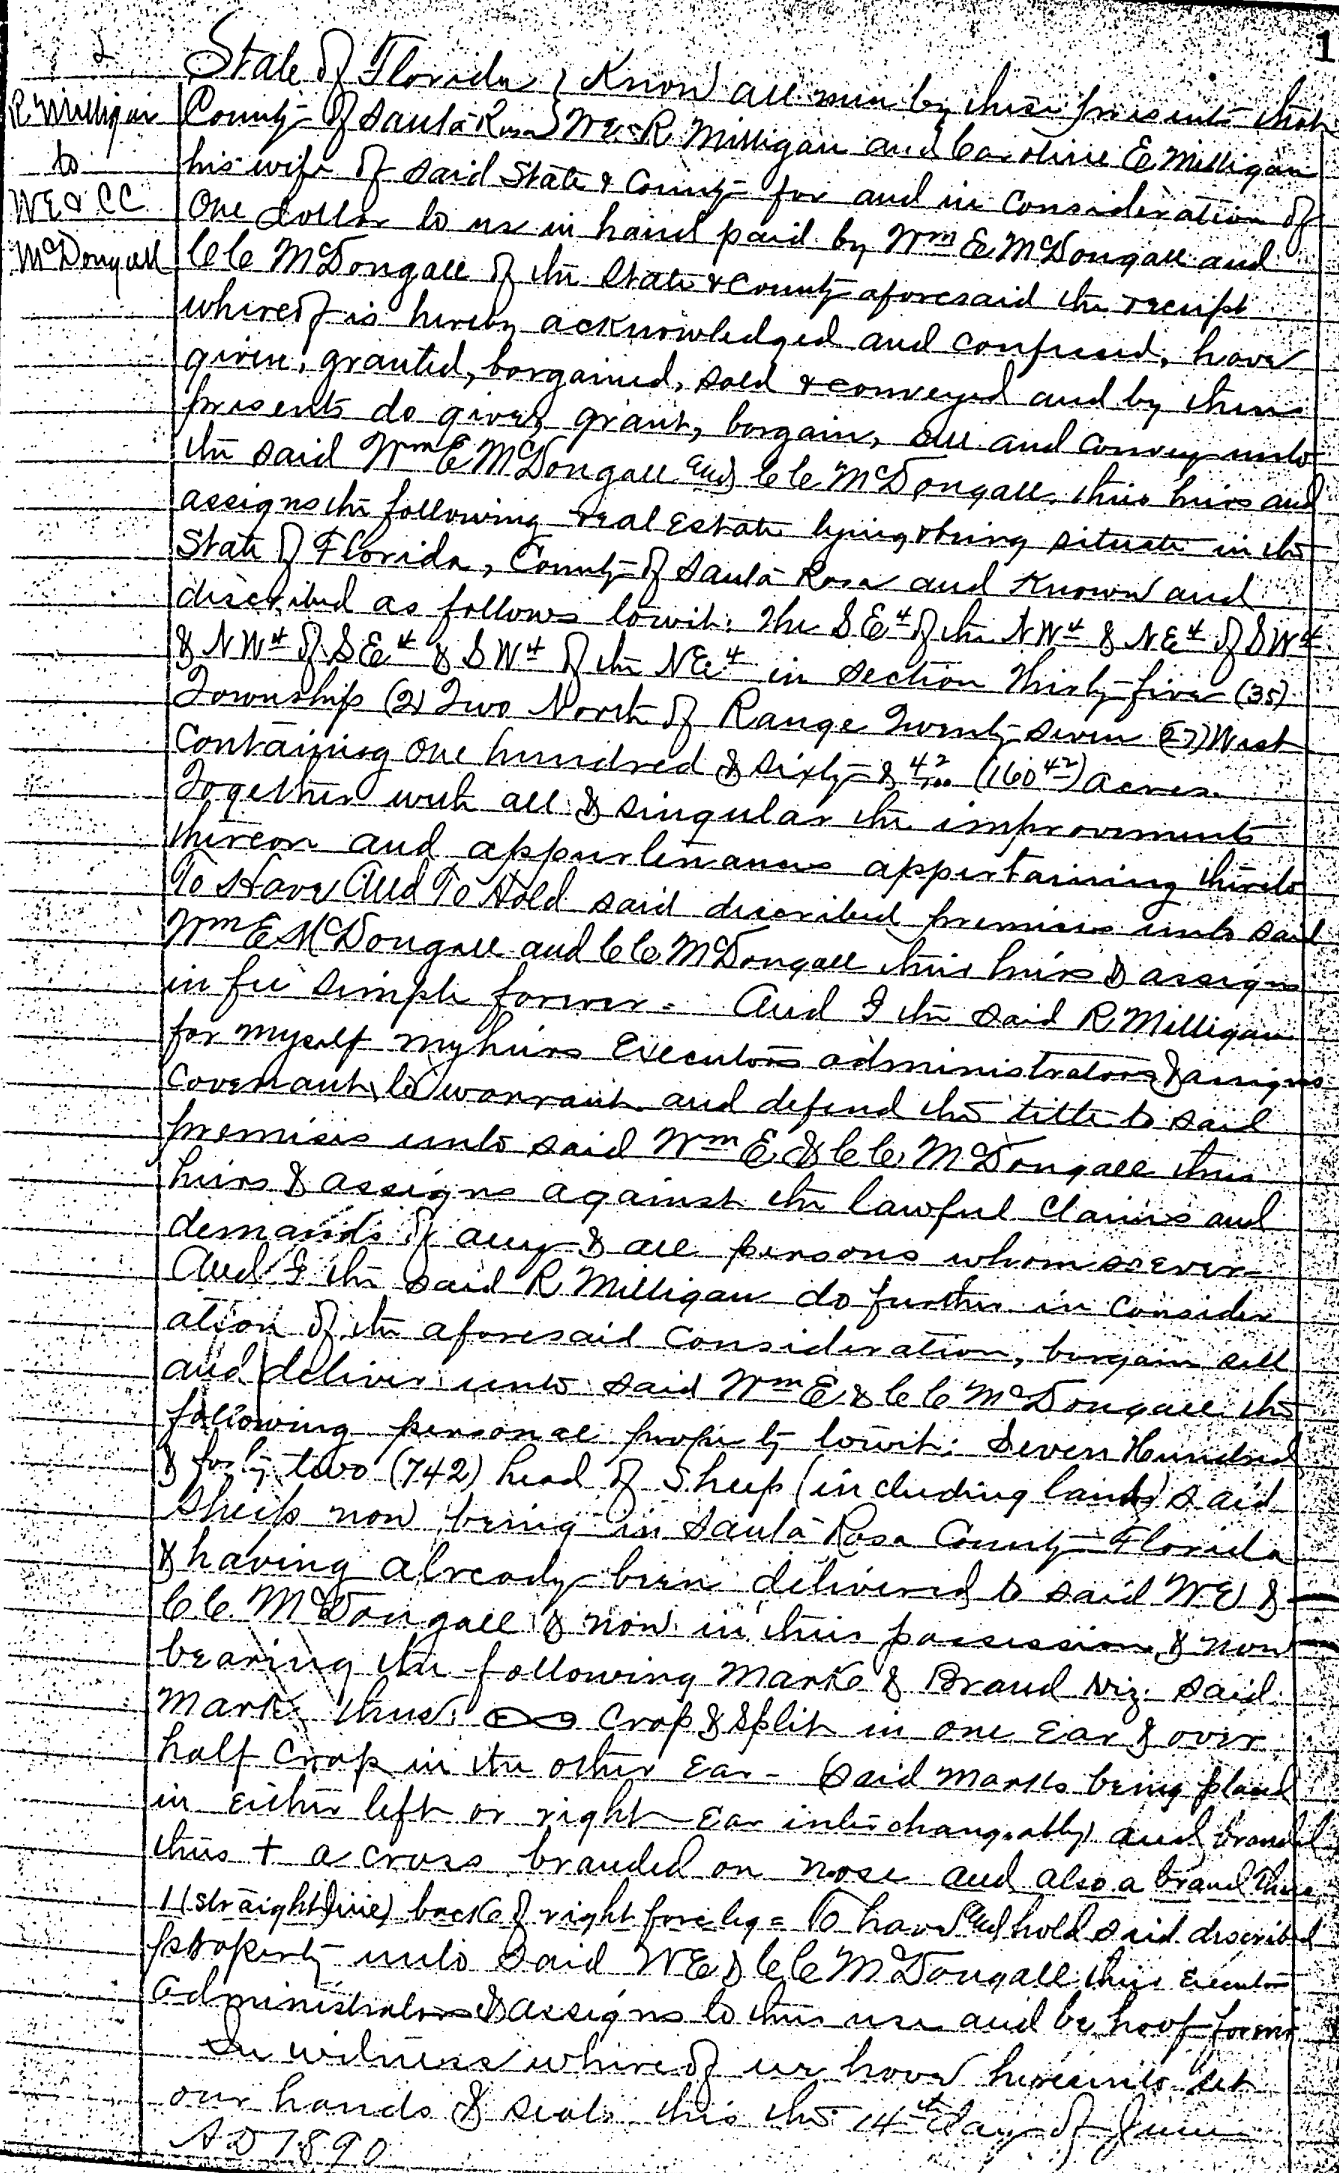 1
R. Milligan
to
W E & C C
McDougall
State of Florida } Know all men by these presents that
County of Santa Rosa } We R. Milligan and Caroline E Milligan
his wife of said State & County for and in consideration of
One dollar to us in hand paid by Wm E McDougall and
C C McDougall of the State & County aforesaid the receipt
whereof is hereby acknowledged and confessed, have
given, granted, bargained, sold & conveyed and by these
presents do give, grant, bargain, sell and convey unto
the said Wm E McDougall and C C McDougall, their heirs and
assigns the following real Estate lying & being situate in the
State of Florida, County of Santa Rosa and Known and
described as follows towit: The S E 4 of the N W 4 & N E 4 of S W 4
& N W 4 of S E 4 & S W 4 of the N E 4 in Section Thirty-five (35)
Township (2) Two North of Range Twenty Seven (27) West
Containing One hundred & sixty & 42/100 (160 42) acres.
Together with all & singular the improvements
thereon and appurtenances appertaining thereto
To Have And To Hold said described premises unto said
Wm E McDougall and C C McDougall their heirs & assigns
in fee simple forever = And I the said R Milligan
for myself my heirs Executors administrators & assigns
covenant to warrant and defend the title to said
premises unto said Wm E & C C McDougall their
heirs & assigns against the lawful Claims and
demands of any & all persons whomsoever
And I the said R Milligan do further in consider
ation of the aforesaid consideration, bargain sell
and deliver unto said Wm E & C C McDougall the
following personal property towit: Seven Hundred
& forty two (742) head of Sheep (including lambs) said
Sheep now being in Santa Rosa County Florida
& having already been delivered to said W E &
C C McDougall & now in their possession & now
bearing the following Mark & Brand Viz. said
Mark thus: Crop & Split in one Ear & over
half Crop in the other Ear - (said marks being placed
in either left or right Ear interchangeably) and branded
thus + a cross branded on nose and also a brand thus
1 (straight line) back of right fore leg = To have and hold said described
property unto said W E & C C McDougall their Executors
Administrators & assigns to their use and behoof forever
In witness whereof we have hereunto set
our hands & seals this the 14th day of June
A D 1890